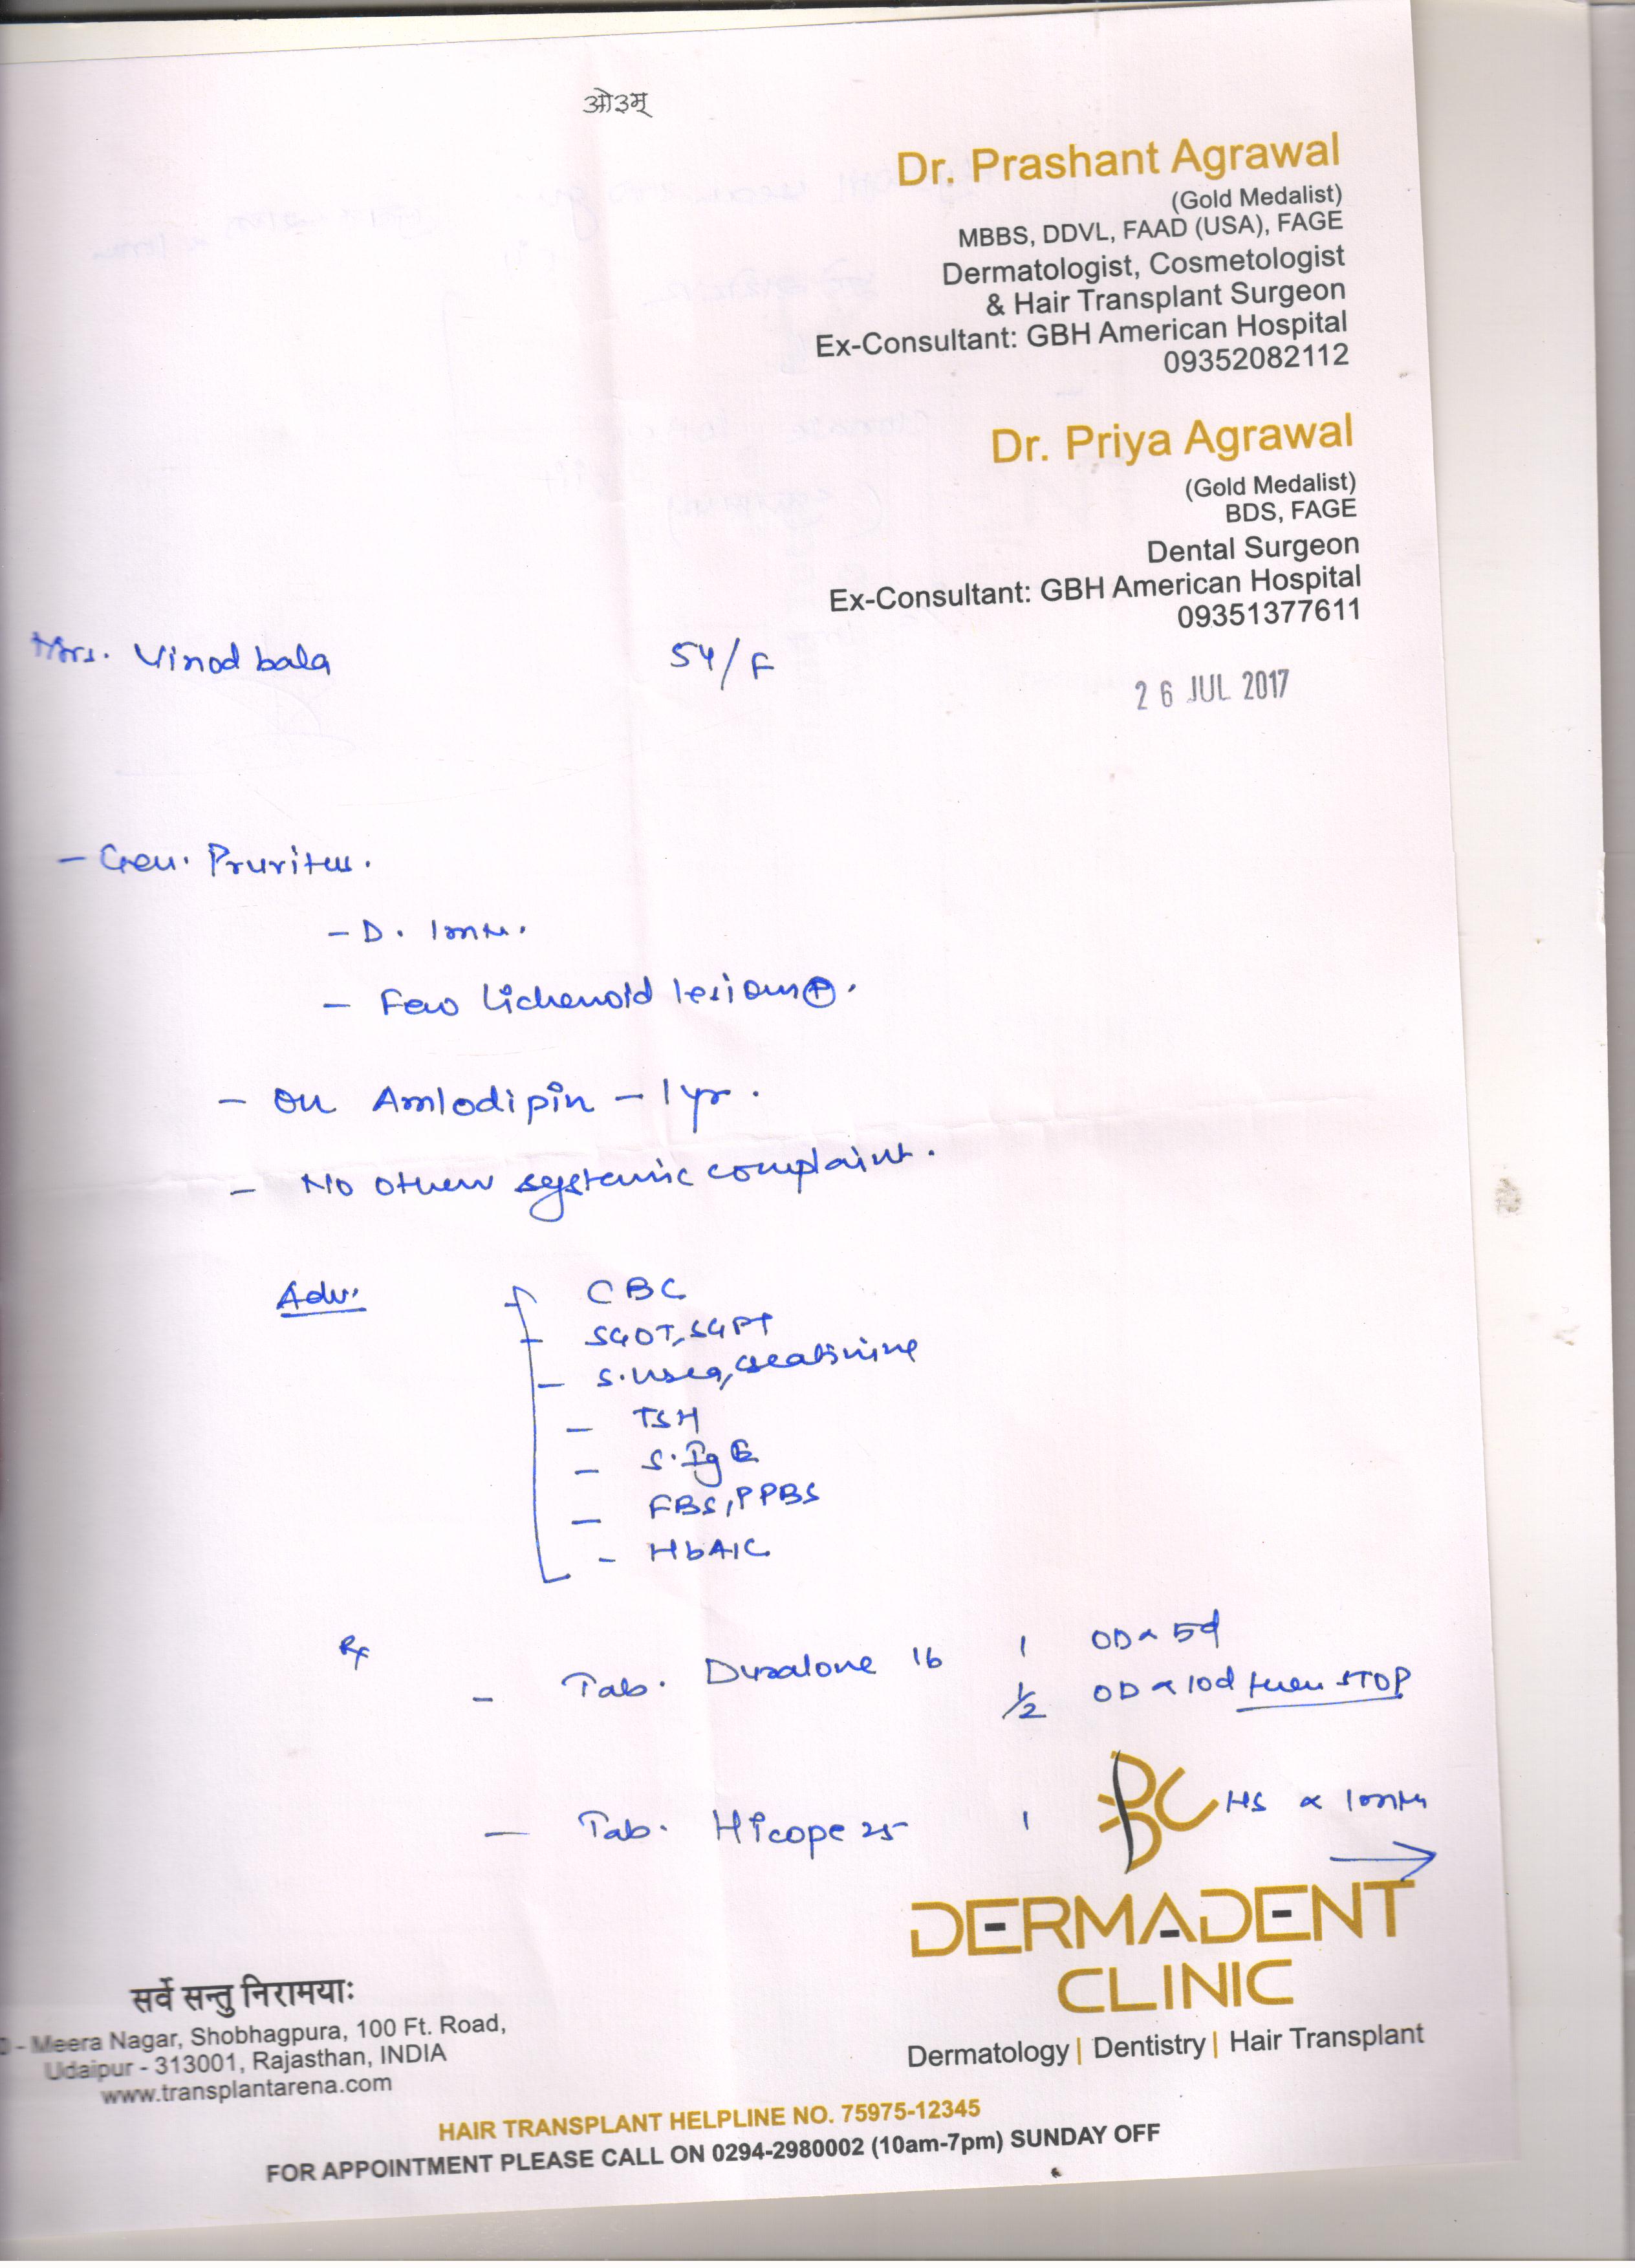 ओ३म्
Dr. Prashant Agrawal
(Gold Medalist)
MBBS, DDVL, FAAD (USA), FAGE
Dermatologist, Cosmetologist
& Hair Transplant Surgeon
Ex-Consultant: GBH American Hospital
09352082112
Dr. Priya Agrawal
(Gold Medalist)
BDS, FAGE
Dental Surgeon
Ex-Consultant: GBH American Hospital
09351377611
Mrs. Vinod bala 54/F
26 JUL 2017
- Gen. Pruritus.
- D. 1mnth.
- Few Lichenoid lesions ⊕.
- On Amlodipin - 1 yr.
- No other systemic complaint.
Adv. - CBC
- SGOT, SGPT
- S. Urea, Creatinine
- TSH
- S. IgE
- FBS, PPBS
- HbA1C
Rx
- Tab. Duralone 16 1 OD x 5d
1/2 OD x 10d then STOP
- Tab. Hicope 25 1 HS x 1mnth
→
BC
DERMADENT
CLINIC
Dermatology | Dentistry | Hair Transplant
सर्वे सन्तु निरामयाः
- Meera Nagar, Shobhagpura, 100 Ft. Road,
Udaipur - 313001, Rajasthan, INDIA
www.transplantarena.com
HAIR TRANSPLANT HELPLINE NO. 75975-12345
FOR APPOINTMENT PLEASE CALL ON 0294-2980002 (10am-7pm) SUNDAY OFF